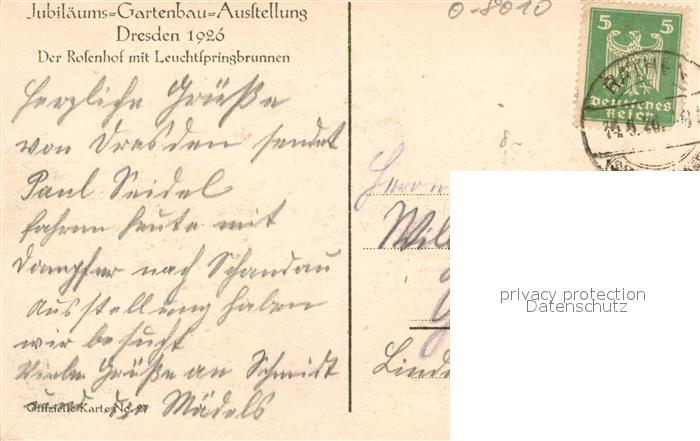 Jubiläums=Gartenbau=Ausstellung
Dresden 1926
Der Rosenhof mit Leuchtspringbrunnen
o-8010
5 5
Deutsches
Reich
Herzliche Grüße
von Dresden sendet
Paul Seidel
fahren heute mit
Dampfer nach Schandau
Ausstellung haben
wir besucht
Viele Grüße an Schmidt
und die Mädels
Offizielle Karte No. 27
8-
Herrn
Will
Linde
privacy protection
Datenschutz